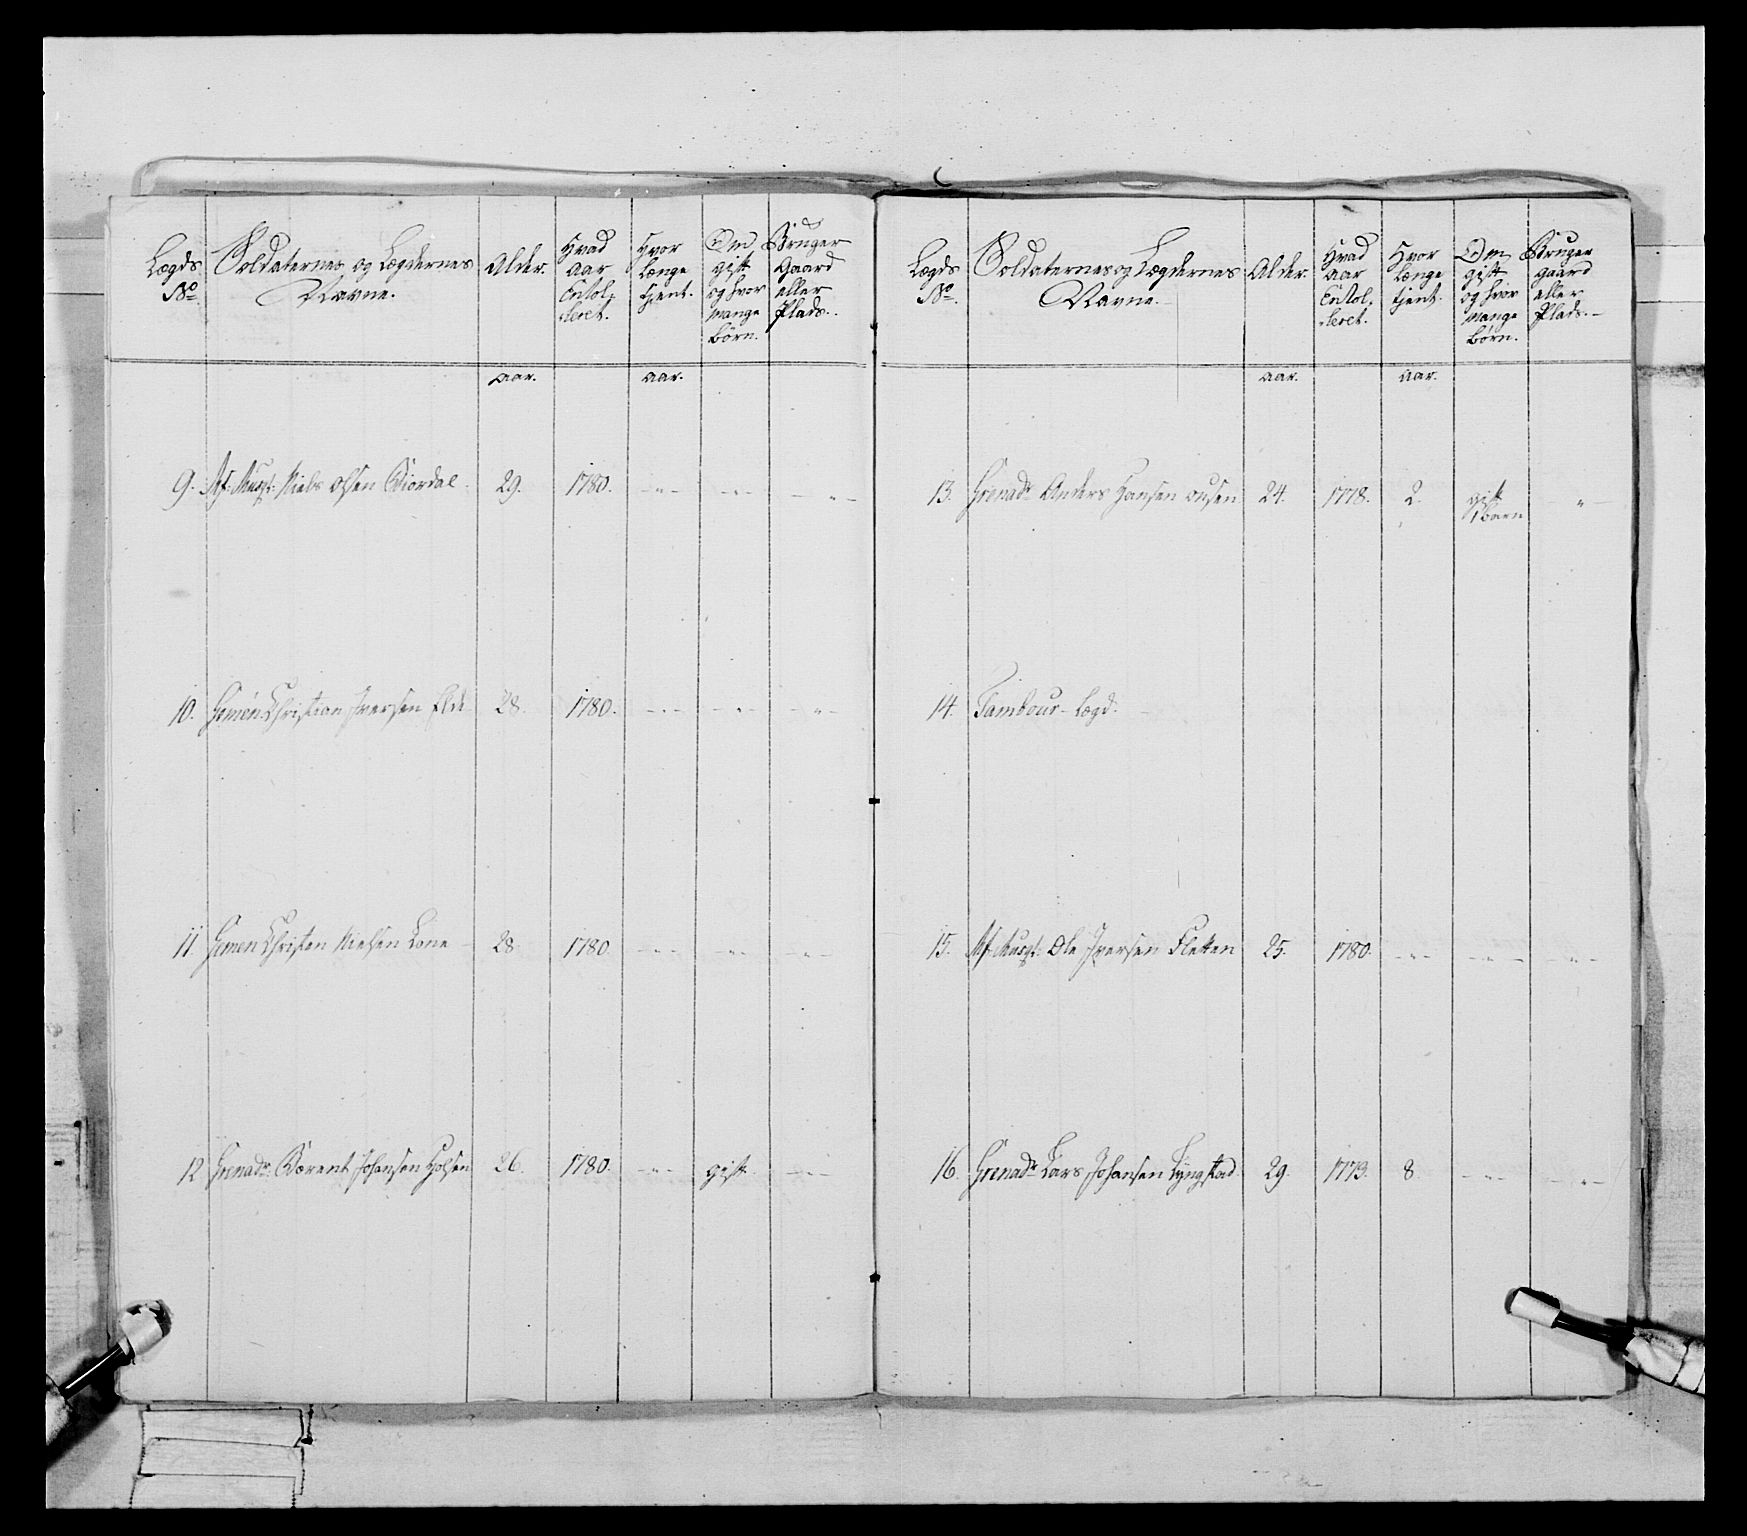 Lægds No.
Soldaternes og Lægdernes Navne.
Alder.
Hvad Aar Enrol-leret.
Hvor længe tjent.
Om gift og hvor mange Børn.
Bruger Gaard eller Plads.
Aar. Aar.
9. Niels Olsen 29. 1780. -"- -"- -"-
10. Christian Iversen 28. 1780. -"- -"- -"-
11. Christen Nielsen Lone 28 1780 -"- -"- -"-
12 Grenadr. Børent Johansen 26. 1780. -"- gift. -"-
Lægds No.
Soldaternes og Lægdernes Navne.
Alder.
Hvad Aar Enrol-leret.
Hvor længe tjent.
Om gift og hvor mange Børn.
Bruger Gaard eller Plads.
Aar. Aar.
13. Grenadr. Anders Hansen 24. 1778. 2. gift 1 Barn "
14. Tambour-Lægd.
15. Ole Iversen Fletten 25. 1780. -"- -"- -"-
16. Grenadr. Lars Johansen Lyngstad 29. 1773. 8. -"- -"-